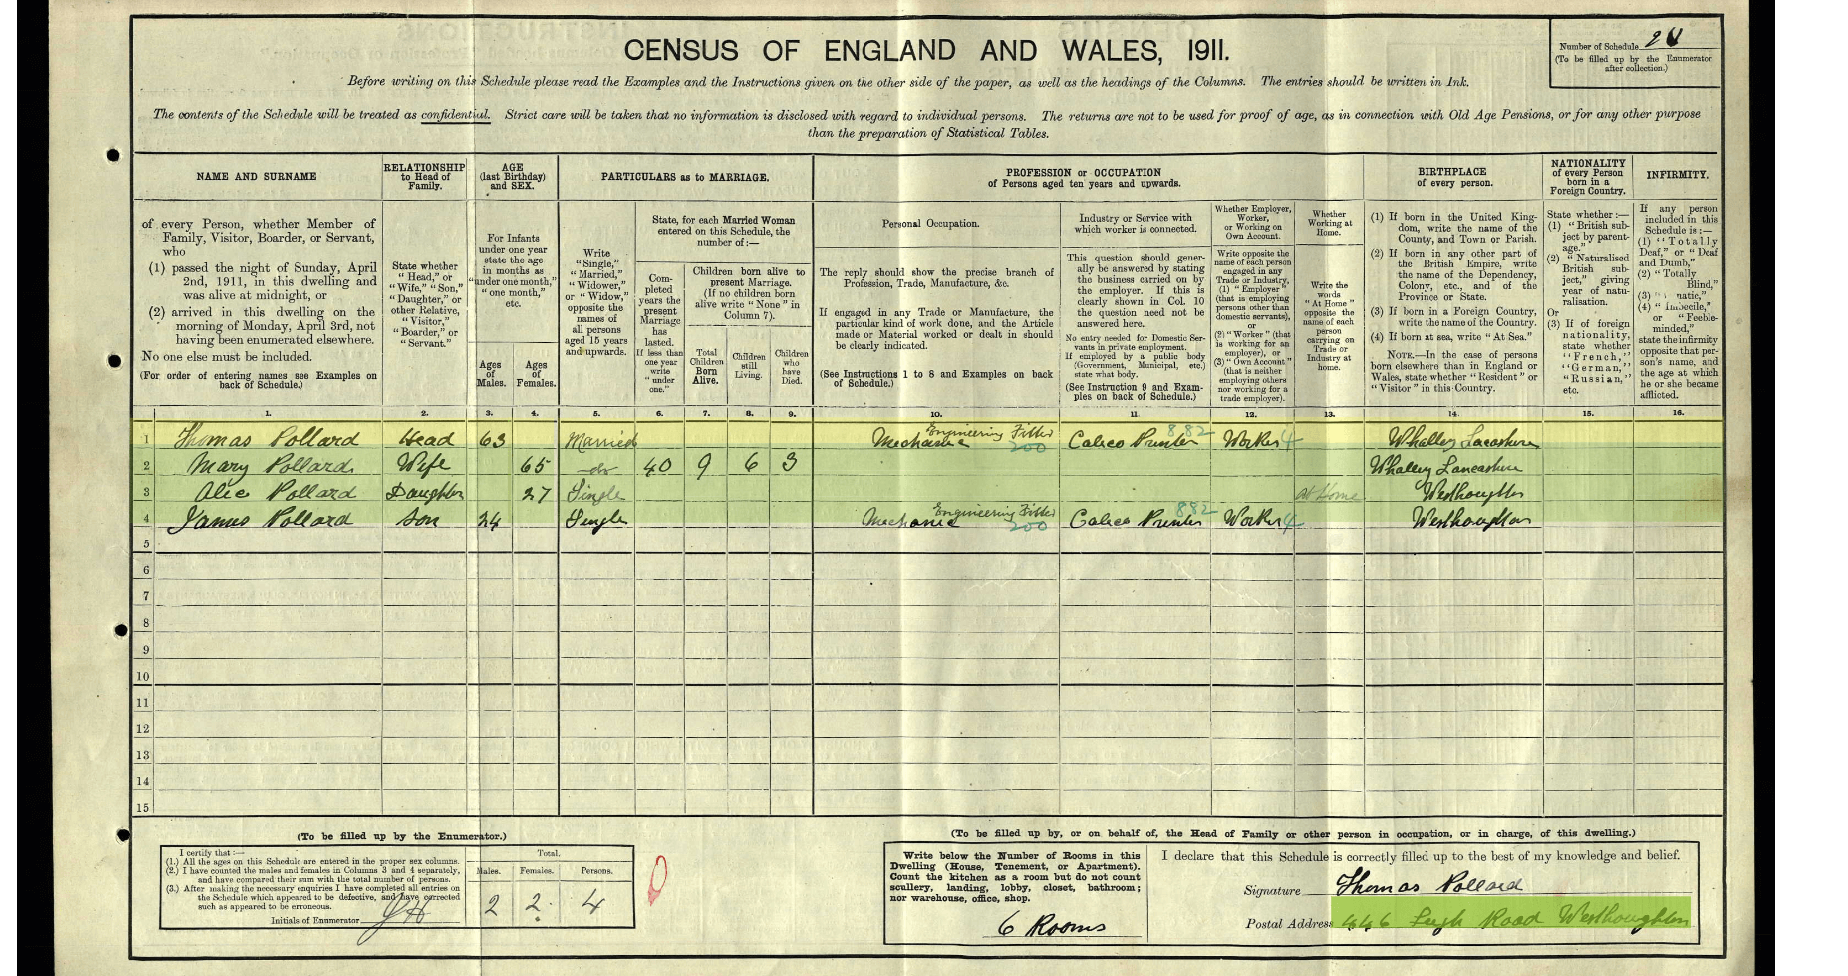 CENSUS OF ENGLAND AND WALES, 1911.
Number of Schedule
(To be filled up by the Enumerator after collection.)
Before writing on this Schedule please read the Examples and the Instructions given on the other side of the paper, as well as the headings of the Columns. The entries should be written in Ink.
The contents of the Schedule will be treated as confidential. Strict care will be taken that no information is disclosed with regard to individual persons. The returns are not to be used for proof of age, as in connection with Old Age Pensions, or for any other purpose
than the preparation of Statistical Tables.
NAME AND SURNAME
RELATIONSHIP to Head of Family.
AGE (last Birthday) and SEX.
PARTICULARS as to MARRIAGE.
PROFESSION or OCCUPATION
of Persons aged ten years and upwards.
BIRTHPLACE of every person.
NATIONALITY of every Person born in a Foreign Country.
INFIRMITY.
of every Person, whether Member of
Family, Visitor, Boarder, or Servant,
who
(1) passed the night of Sunday, April
2nd, 1911, in this dwelling and
was alive at midnight, or
(2) arrived in this dwelling on the
morning of Monday, April 3rd, not
having been enumerated elsewhere.
No one else must be included.
(For order of entering names see Examples on
back of Schedule.)
State whether
"Head," or
"Wife," "Son,"
"Daughter," or
other Relative,
"Visitor,"
"Boarder," or
"Servant."
For Infants
under one year
state the age
in months as
"under one month,"
"one month,"
etc.
Ages of Males.
Ages of Females.
Write
"Single,"
"Married,"
"Widower,"
or "Widow,"
opposite the
names of
all persons
aged 15 years
and upwards.
State, for each Married Woman
entered on this Schedule, the
number of:—
Completed years the present Marriage has lasted.
If less than one year write "under one."
Children born alive to
present Marriage.
(If no children born
alive write "None" in
Column 7).
Total Children Born Alive.
Children still Living.
Children who have Died.
Personal Occupation.
The reply should show the precise branch of
Profession, Trade, Manufacture, &c.
If engaged in any Trade or Manufacture, the
particular kind of work done, and the Article
made or Material worked or dealt in should
be clearly indicated.
(See Instructions 1 to 8 and Examples on back
of Schedule.)
Industry or Service with
which worker is connected.
This question should gener-
ally be answered by stating
the business carried on by
the employer. If this is
clearly shown in Col. 10
the question need not be
answered here.
No entry needed for Domestic Ser-
vants in private employment.
If employed by a public body
(Government, Municipal, etc.)
state what body.
(See Instruction 9 and Exam-
ples on back of Schedule.)
Whether Employer,
Worker,
or Working on
Own Account.
Write opposite the
name of each person
engaged in any
Trade or Industry,
(1) "Employer"
(that is employing
persons other than
domestic servants),
or
(2) "Worker" (that
is working for an
employer), or
(3) "Own Account"
(that is neither
employing others
nor working for a
trade employer).
Whether
Working at
Home.
Write the
words
"At Home"
opposite the
name of each
person
carrying on
Trade or
Industry at
home.
(1) If born in the United King-
dom, write the name of the
County, and Town or Parish.
(2) If born in any other part of
the British Empire, write
the name of the Dependency,
Colony, etc., and of the
Province or State.
(3) If born in a Foreign Country,
write the name of the Country.
(4) If born at sea, write "At Sea."
NOTE.—In the case of persons
born elsewhere than in England or
Wales, state whether "Resident" or
"Visitor" in this Country.
State whether :—
(1) "British sub-
ject by parent-
age."
(2) "Naturalised
British sub-
ject," giving
year of natu-
ralisation.
Or
(3) If of foreign
nationality,
state whether
"French,"
"German,"
"Russian,"
etc.
If any person
included in this
Schedule is :—
(1) "Totally
Deaf," or "Deaf
and Dumb,"
(2) "Totally
Blind,"
(3)
(4) "Imbecile,"
or "Feeble-
minded,"
state the infirmity
opposite that per-
son's name, and
the age at which
he or she became
afflicted.
1. 2. 3. 4. 5. 6. 7. 8. 9. 10. 11. 12. 13. 14. 15. 16.
1 Thomas Pollard Head 63 Married Mechanic Engineering Fitter 200 Calico Printer 882 Worker 4 Whalley Lancashire
2 Mary Pollard Wife 65 do 40 9 6 3 Whalley Lancashire
3 Alice Pollard Daughter 27 Single at Home Westhoughton
4 James Pollard Son 24 Single Mechanic Engineering Fitter 200 Calico Printer 882 Worker 4 Westhoughton
5
6
7
8
9
10
11
12
13
14
15
(To be filled up by the Enumerator.)
I certify that :—
(1.) All the ages on this Schedule are entered in the proper sex columns.
(2.) I have counted the males and females in Columns 3 and 4 separately,
and have compared their sum with the total number of persons.
(3.) After making the necessary enquiries I have completed all entries on
the Schedule which appeared to be defective, and have corrected
such as appeared to be erroneous.
Initials of Enumerator
Total.
Males. Females. Persons.
2 2 4
(To be filled up by, or on behalf of, the Head of Family or other person in occupation, or in charge, of this dwelling.)
Write below the Number of Rooms in this
Dwelling (House, Tenement, or Apartment).
Count the kitchen as a room but do not count
scullery, landing, lobby, closet, bathroom;
nor warehouse, office, shop.
6 Rooms
I declare that this Schedule is correctly filled up to the best of my knowledge and belief.
Signature Thomas Pollard
Postal Address 446 Leigh Road Westhoughton